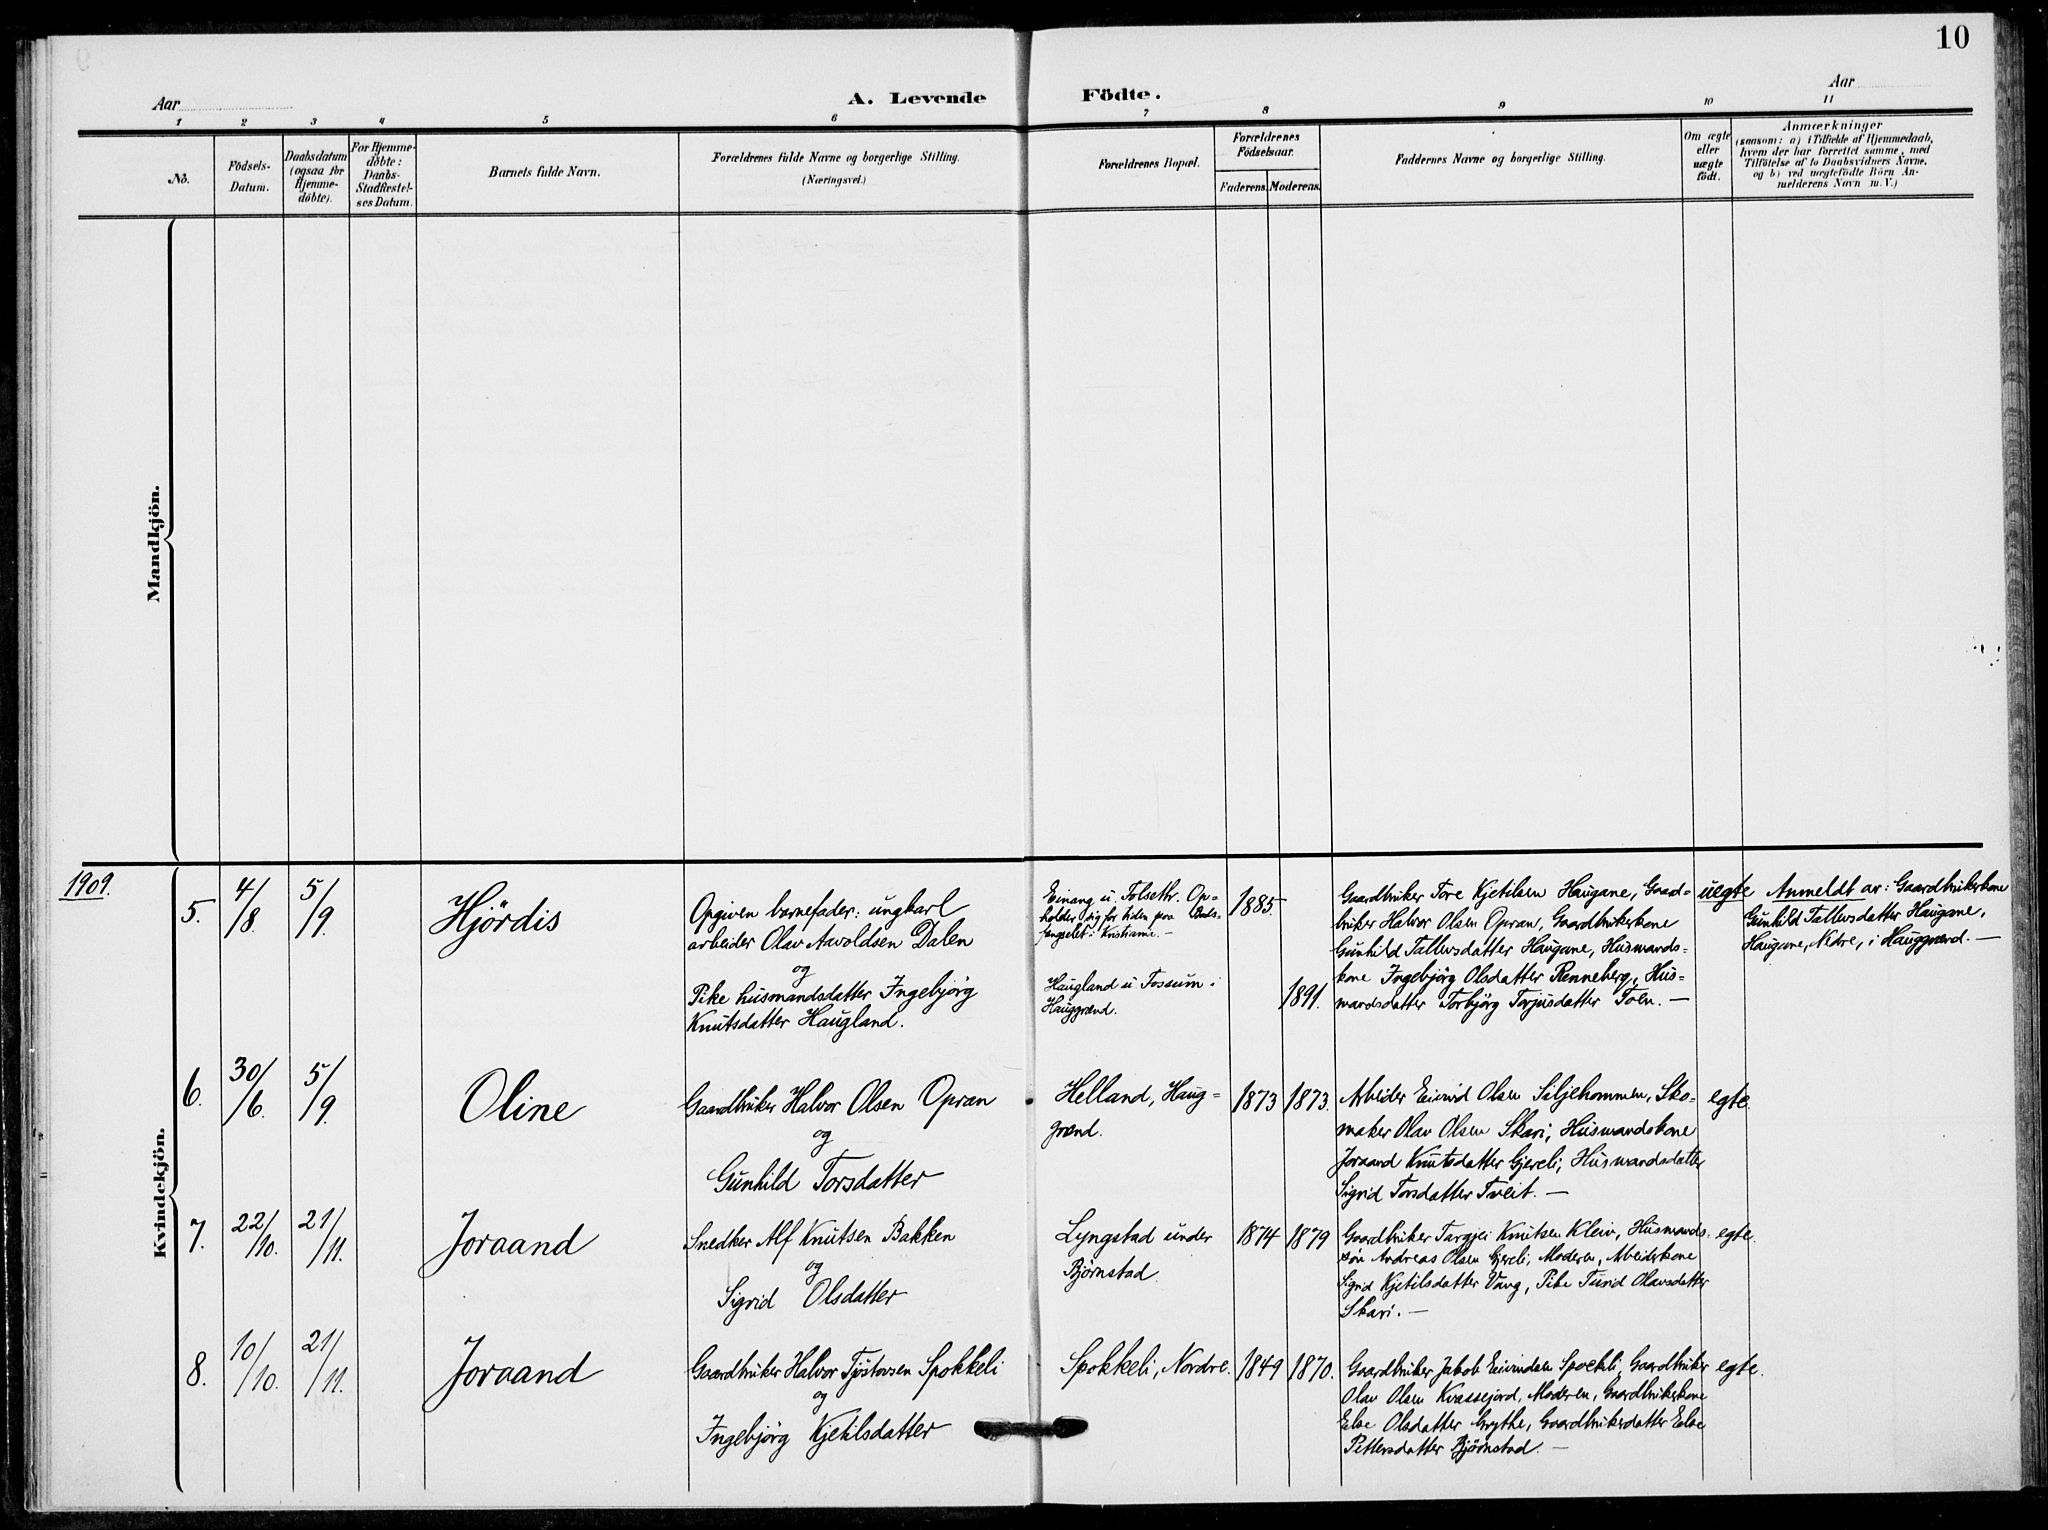 10
Aar
A. Levende Födte.
Aar
1 2 3 4 5 6 7 8 9 10 11
No.
Födsels-
Datum.
Daabsdatum
(ogsaa for
Hjemme-
døbte).
For Hjemme-
døbte:
Daabs-
Stadfæstel-
ses Datum.
Barnets fulde Navn.
Forældrenes fulde Navne og borgerlige Stilling.
(Næringsvei.)
Forældrenes Bopæl.
Forældrenes
Födselsaar.
Faderens. Moderens.
Faddernes Navne og borgerlige Stilling.
Om ægte
eller
uægte
födt.
Anmærkninger
(saasom: a) i Tilfælde af Hjemmedaab,
hvem der har forrettet samme, med
Tilföielse af to Daabsvidners Navne,
og b) ved uægtefödte Börn An-
melderens Navn m. V.)
Mandkjön.
Kvindekjön.
1909.
5.
4/8.
5/9.
Hjördis
Opgiven barnefader: ungkarl
arbeider Olav Aavoldsen Dalen
og
Pike husmandsdatter Ingebjörg
Knutsdatter Haugland.
Einang u. Folsethr. Op-
holder sig for tiden paa Bods-
fængslet i Kristiania. —
Haugland u Fossum i
Hauggrend.
1885.
1891.
Gaardbruker Tore Kjetilsen Haugane, Gaard-
bruker Halvor Olsen Opran, Gaardbrukerkone
Gunhild Tallevsdatter Haugane, Husmands-
kone Ingebjörg Olsdatter Renneberg, Hus-
mandsdatter Torbjörg Torjusdatter Toen. —
uegte
Anmeldt av: Gaardbrukerkone
Gunhild Tallevsdatter Haugane,
Haugane, Nedre, i Hauggrænd. —
6.
30/6.
5/9.
Oline
Gaardbruker Halvor Olsen Opran
og
Gunhild Torsdatter
Helland, Haug-
grænd.
1873
1873.
Arbeider Eivind Olsen Siljehommen, Sko-
maker Olav Olsen Skari, Husmandskone
Joraand Knutsdatter Gjereli, Husmandsdatter
Sigrid Torsdatter Tveit. —
egte.
7.
22/10.
21/11.
Joraand
Snedker Alf Knutsen Bakken
og
Sigrid Olsdatter
Lyngstad under
Bjørnstad.
1874
1879
Gaardbruker Targjei Knutsen Kleiv, Husmands-
søn Andreas Olsen Gjereli, Moderen, Arbeiderkone
Sigrid Kjetilsdatter Vaag, Pike Turid Olavsdatter
Skari. —
egte.
8.
10/10.
21/11.
Joraand
Gaardbruker Halvor Tjöstovsen Spokkeli
og
Ingebjörg Kjetilsdatter
Spokkeli, Nordre.
1849
1870.
Gaardbruker Jakob Eivindsen Spokkeli, Gaardbruker
Olav Olsen Kvassejord, Moderen, Gaardbrukerkone
Else Olsdatter Grythe, Gaardbrukerdatter Else
Pettersdatter Bjørnstad. —
egte.